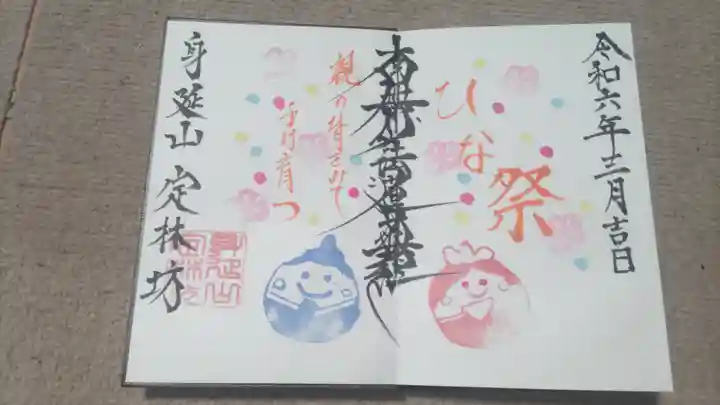 令和六年三月吉日
ひな
祭
南無妙法蓮華経
親の背をみて
子は育つ
身延山 定林坊